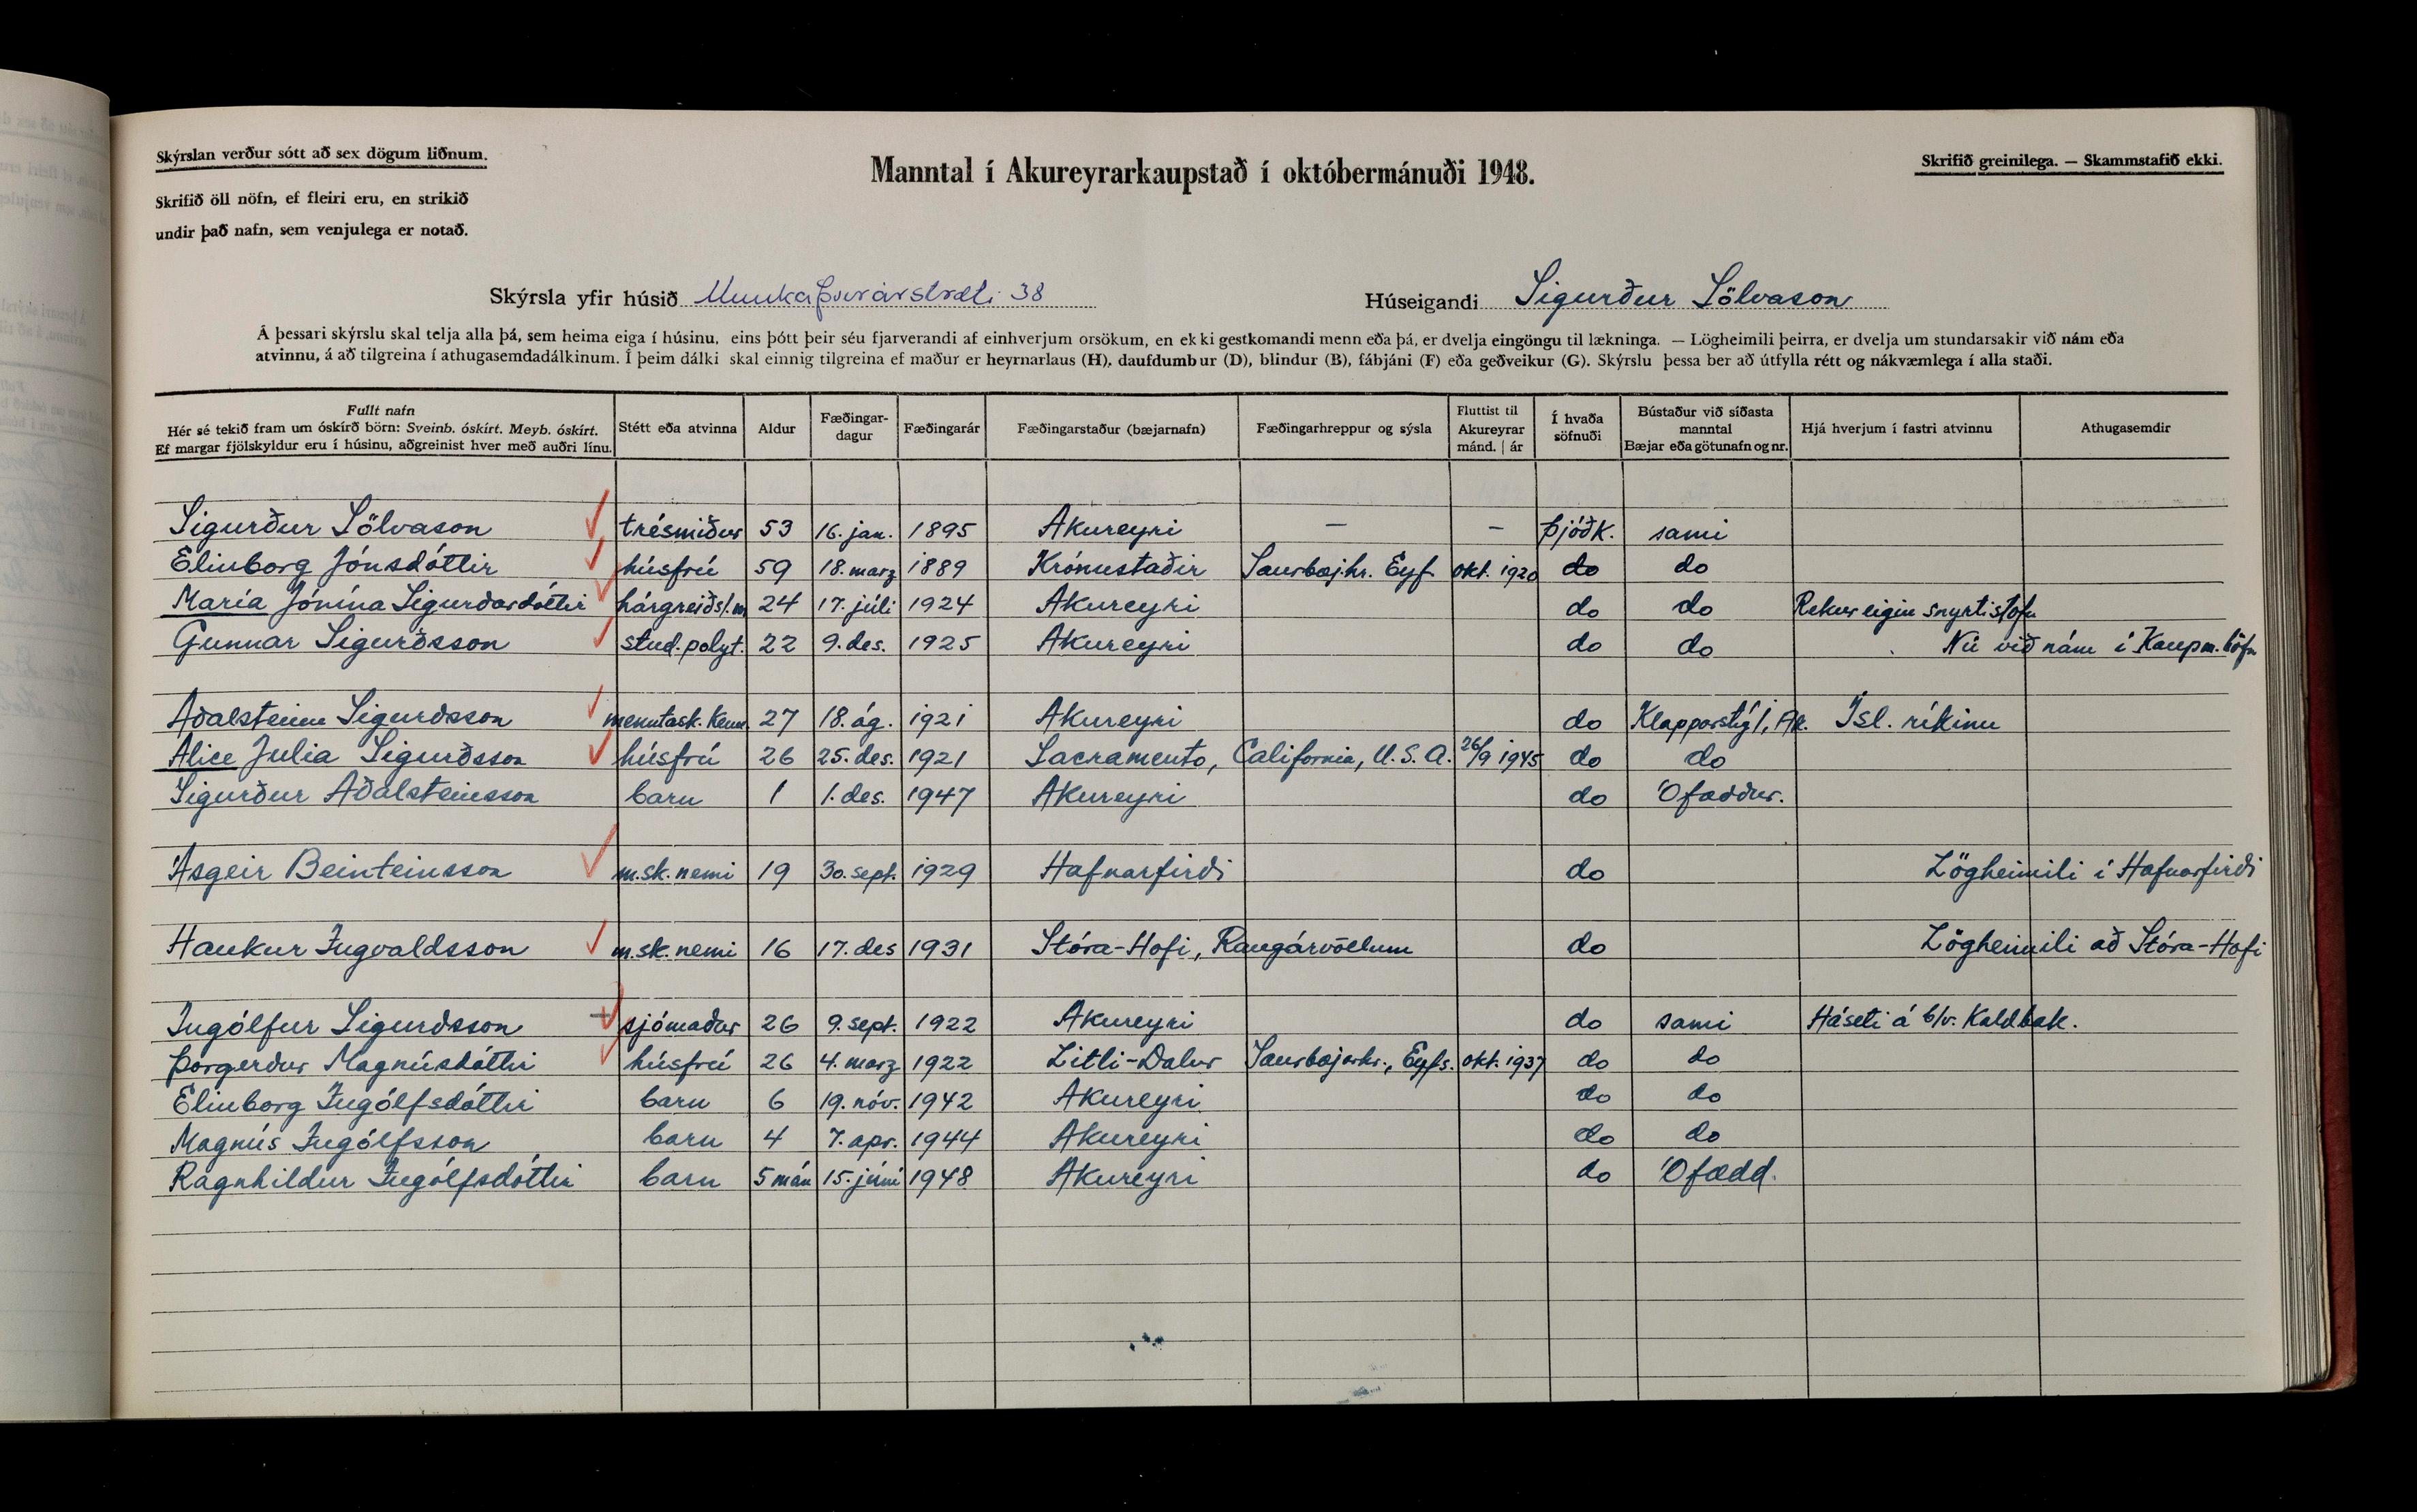 Skýrslan verður sótt að sex dögum liðnum.
Skrifið öll nöfn, ef fleiri eru, en strikið
undir það nafn, sem venjulega er notað.
Manntal í Akureyrarkaupstað í októbermánuði 1948.
Skrifið greinilega. — Skammstafið ekki.
Skýrsla yfir húsið Munkaþverárstræti 38
Húseigandi Sigurður Sölvason
Á þessari skýrslu skal telja alla þá, sem heima eiga í húsinu, eins þótt þeir séu fjarverandi af einhverjum orsökum, en ekki gestkomandi menn eða þá, er dvelja eingöngu til lækninga. — Lögheimili þeirra, er dvelja um stundarsakir við nám eða
atvinnu, á að tilgreina í athugasemdadálkinum. Í þeim dálki skal einnig tilgreina ef maður er heyrnarlaus (H), daufdumbur (D), blindur (B), fábjáni (F) eða geðveikur (G). Skýrslu þessa ber að útfylla rétt og nákvæmlega í alla staði.
Fullt nafn
Hér sé tekið fram um óskírð börn: Sveinb. óskírt. Meyb. óskírt.
Ef margar fjölskyldur eru í húsinu, aðgreinist hver með auðri línu.
Stétt eða atvinna
Aldur
Fæðingar-
dagur
Fæðingarár
Fæðingarstaður (bæjarnafn)
Fæðingarhreppur og sýsla
Fluttist til
Akureyrar
mánd. | ár
Í hvaða
söfnuði
Bústaður við síðasta
manntal
Bæjar eða götunafn og nr.
Hjá hverjum í fastri atvinnu
Athugasemdir
Sigurður Sölvason trésmiður 53 16. jan. 1895 Akureyri — — þjóðk. sami
Elinborg Jónsdóttir húsfrú 59 18. marz 1889 Krónustaðir Saurbæj.hr. Eyf. okt. 1920 do do
María Jónína Sigurðardóttir hárgreiðsl.m 24 17. júli 1924 Akureyri do do Rekur eigin snyrtistofu
Gunnar Sigurðsson stud. polyt. 22 9. des. 1925 Akureyri do do Nú við nám í Kaupm.höfn
Aðalsteinn Sigurðsson menntask. kenn. 27 18. ág. 1921 Akureyri do Klapparstíg 1, Ak. Ísl. ríkinu
Alice Julia Sigurðsson húsfrú 26 25. des. 1921 Sacramento, California, U.S.A. 26/9 1945 do do
Sigurður Aðalsteinsson barn 1 1. des. 1947 Akureyri do Ófæddur.
Ásgeir Beinteinsson m.sk. nemi 19 30. sept. 1929 Hafnarfirði do Lögheimili í Hafnarfirði
Haukur Ingvaldsson m.sk. nemi 16 17. des 1931 Stóra-Hofi, Rangárvöllum do Lögheimili að Stóra-Hofi
Ingólfur Sigurðsson sjómaður 26 9. sept. 1922 Akureyri do sami Háseti á b/v. Kaldbak.
Þorgerður Magnúsdóttir húsfrú 26 4. marz 1922 Litli-Dalur Saurbæjarhr., Eyfs. okt. 1937 do do
Elinborg Ingólfsdóttir barn 6 19. nóv. 1942 Akureyri do do
Magnús Ingólfsson barn 4 7. apr. 1944 Akureyri do do
Ragnhildur Ingólfsdóttir barn 5 mán 15. júní 1948 Akureyri do Ófædd.